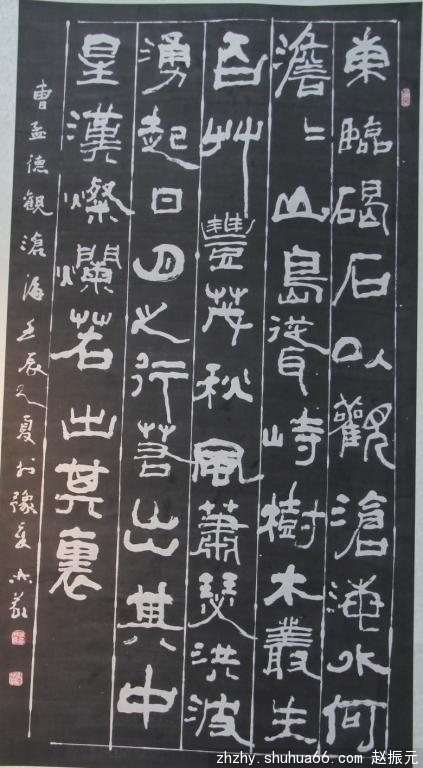 東臨碣石以觀滄海水何
澹〻山島聳峙樹木叢生
百艸豐茂秋風蕭瑟洪波
湧起日月之行若出其中
星漢燦爛若出其裏
曹孟德觀滄海壬辰之夏於豫
zhzhy.shuhua66.com 赵振元